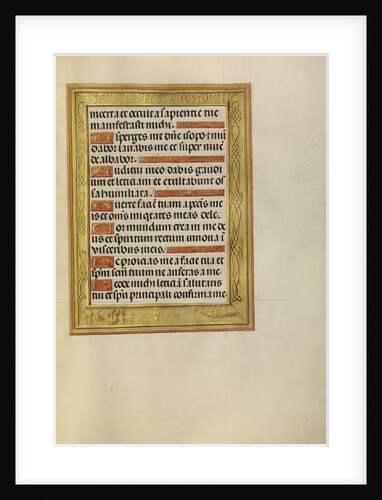 incerta et occulta sapientie tue
manifestasti michi.
Asperges me dñe isopo et mū
dabor lauabis me et super niuē
dealbabor.
Auditui meo dabis gaudi
um et leticiam et exultabunt os
sa humiliata.
Auerte faciē tuam a pctis me
is et oms iniqtates meas dele.
Cor mundum crea in me de
us et spiritum rectum innoua in
visceribus meis.
Ne proicias me a facie tua et
spm sctm tuum ne auferas a me
Redde michi leticiā salutaris
tui et spu principali confirma me.